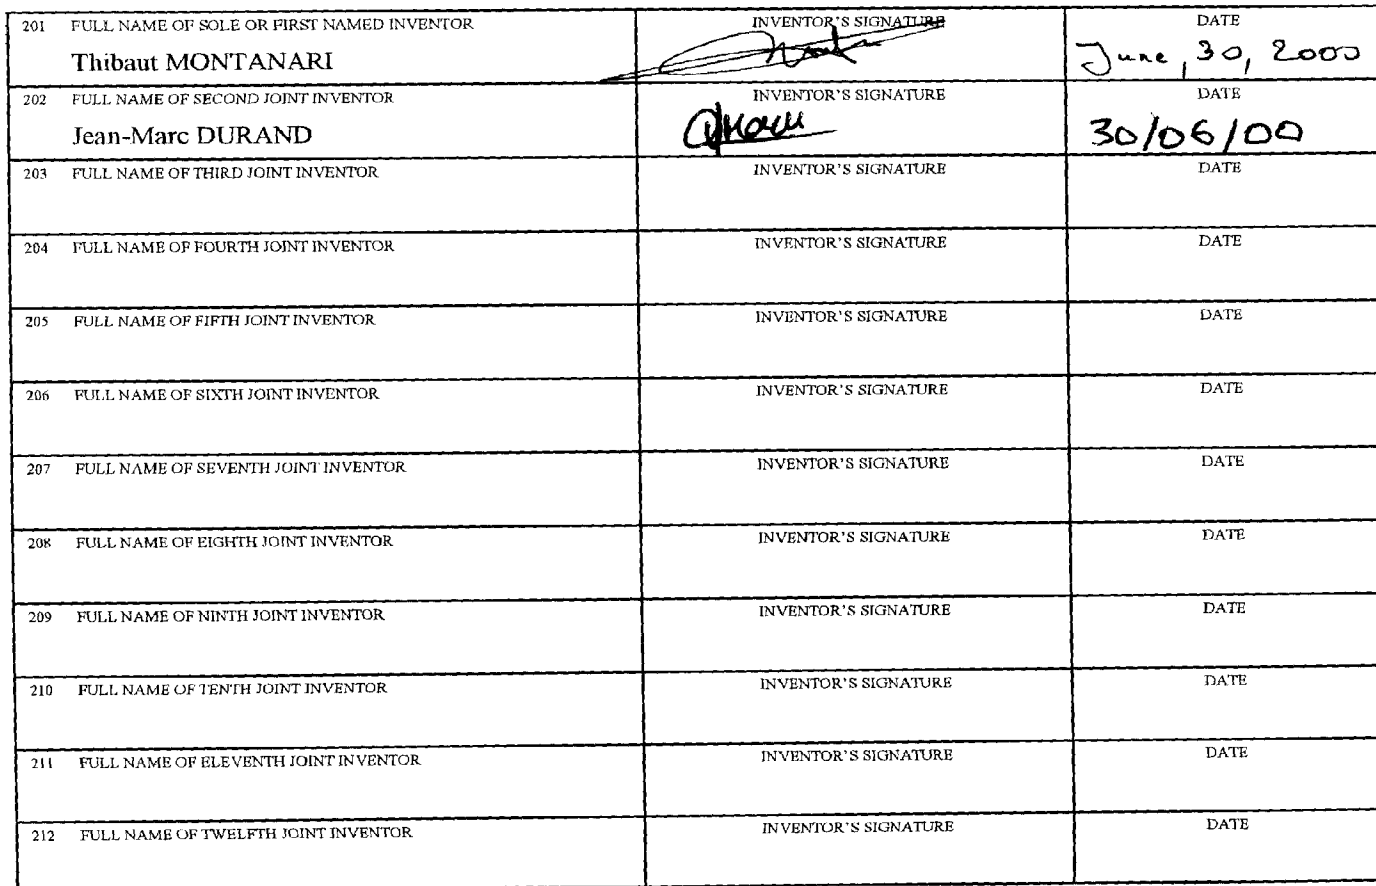 201 FULL NAME OF SOLE OR FIRST NAMED INVENTOR INVENTOR'S SIGNATURE DATE
Thibaut MONTANARI June, 30, 2000
202 FULL NAME OF SECOND JOINT INVENTOR INVENTOR'S SIGNATURE DATE
Jean-Marc DURAND 30/06/00
203 FULL NAME OF THIRD JOINT INVENTOR INVENTOR'S SIGNATURE DATE
204 FULL NAME OF FOURTH JOINT INVENTOR INVENTOR'S SIGNATURE DATE
205 FULL NAME OF FIFTH JOINT INVENTOR INVENTOR'S SIGNATURE DATE
206 FULL NAME OF SIXTH JOINT INVENTOR INVENTOR'S SIGNATURE DATE
207 FULL NAME OF SEVENTH JOINT INVENTOR INVENTOR'S SIGNATURE DATE
208 FULL NAME OF EIGHTH JOINT INVENTOR INVENTOR'S SIGNATURE DATE
209 FULL NAME OF NINTH JOINT INVENTOR INVENTOR'S SIGNATURE DATE
210 FULL NAME OF TENTH JOINT INVENTOR INVENTOR'S SIGNATURE DATE
211 FULL NAME OF ELEVENTH JOINT INVENTOR INVENTOR'S SIGNATURE DATE
212 FULL NAME OF TWELFTH JOINT INVENTOR INVENTOR'S SIGNATURE DATE